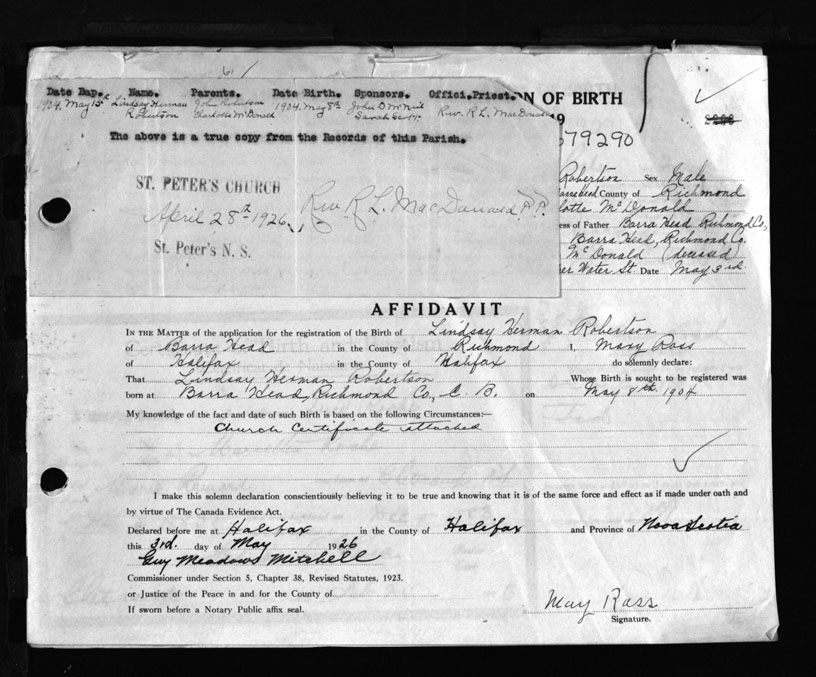 Date Bap. Name. Parents. Date Birth. Sponsors. Offici.Priest.
1904. May 15th Lindsay Herman John Robertson 1904. May 8th John D McNeil Rev. R. L. MacDonald
Robertson Charlotte McDonald Sarah
The above is a true copy from the Records of this Parish.
ST. PETER'S CHURCH
April 28th 1926. Rev. R. L. MacDonald P.P.
St. Peter's N. S.
ON OF BIRTH
19
679290
Robertson Sex Male
County of Richmond
lotte McDonald
ess of Father Barra Head Richmond Co,
Barra Head, Richmond Co.
McDonald (deceased)
er Water St. Date May 3rd
AFFIDAVIT
IN THE MATTER of the application for the registration of the Birth of Lindsay Herman Robertson
of Barra Head in the County of Richmond I, Mary Ross
of Halifax in the County of Halifax do solemnly declare:
That Lindsay Herman Robertson Whose Birth is sought to be registered was
born at Barra Head, Richmond Co., C. B. on May 8th. 1904
My knowledge of the fact and date of such Birth is based on the following Circumstances:—
Church Certificate attached
I make this solemn declaration conscientiously believing it to be true and knowing that it is of the same force and effect as if made under oath and
by virtue of The Canada Evidence Act.
Declared before me at Halifax in the County of Halifax and Province of Nova Scotia
this 3rd. day of May 1926
Guy Meadows Mitchell
Commissioner under Section 5, Chapter 38, Revised Statutes, 1923.
or Justice of the Peace in and for the County of
If sworn before a Notary Public affix seal.
May Ross
Signature.